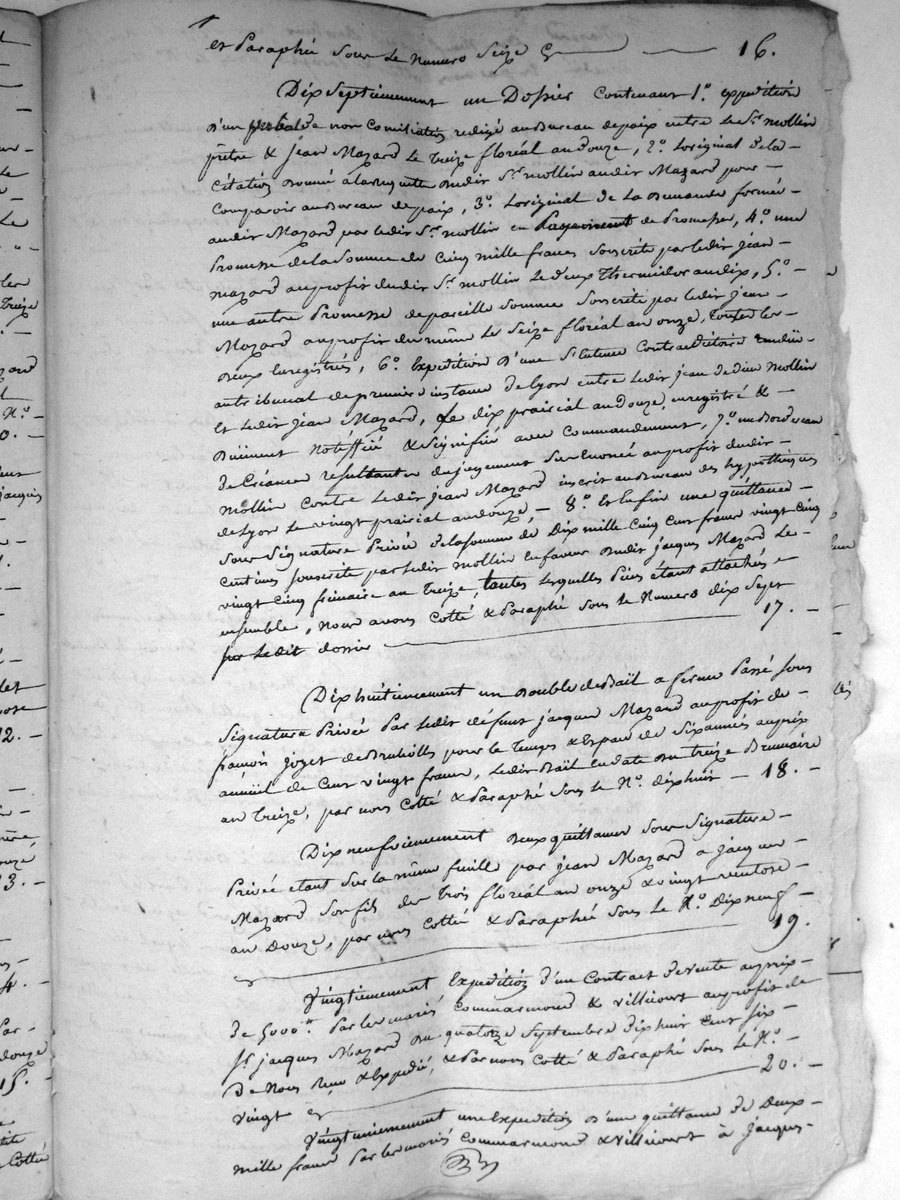 et Paraphé sous le numero Seize 16.
Dix Septiemement un Dossier Contenant 1.° expedition
d'un verbal de non Conciliation redigé au Bureau de paix entre le Sr. mollin
prêtre & Jean Mazard le treize floréal an douze, 2.° Loriginal de la
Citation donné a la requete dudit Sr. mollin audit Mazard pour
Comparoir au Bureau de paix, 3.° Loriginal de la demande formée
audit Mazard par ledit Sr. mollin en Payement de Promesse, 4.° une
Promesse de la Somme de Cinq mille francs Souscrite par ledit Jean
mazard au profit dudit Sr. mollin le deux Thermidor an dix, 5.°
une autre Promesse de pareille Somme Souscrite par ledit Jean
Mazard au profit du même le Seize floréal an onze, toutes les
deux Enregistrés, 6.° Expedition d'une Sentence Contradictoire rendüe
au tribunal de premiere instance de Lyon entre ledit Jean de dieu Mollin
et ledit Jean Mazard, Le dix prairial an douze, enregistré &
Duement Notiffié & Signifié avec Commandement, 7.° un Bordereau
de Créance resultante du jugement Sus Enoncé au profit dudit
mollin Contre ledit Jean Mazard inscrit au Bureau des hypothèques
de Lyon le vingt prairial an douze, - 8.° Et Enfin une quittance
Sous Signature Privée de la Somme de Dix mille Cinq Cent francs vingt Cinq
Centimes Souscrite par ledit mollin En faveur dudit Jacques Mazard le
vingt Cinq frimaire an treize, toutes lesquelles Pièces étant attachés
ensemble, Nous avons Cotté & Paraphé Sous le Numero dix Sept
ledit dossier 17. -
Dix huitiemement un double de Bail a ferme Passé Sous
Signature Privée Par ledit défunt Jacques Mazard au profit de
françois Joyet de pour le temps & Espace de Six années au prix
annuel de Cent vingt francs, ledit Bail en date du treize Brumaire
an treize, par nous Cotté & Paraphé Sous le N.° dix huit - 18. -
Dix neufviemement deux quittances Sous Signature
Privée etant Sur la même feuille par Jean Mazard a Jacques
Mazard Son fils des trois floréal an onze & vingt ventose
an Douze, par nous Cotté & Paraphé Sous le N.° Dix neuf
19.
Vingtiemement Expedition d'un Contract de vente au prix
de 5000.tt Par les mariés Commarmond & Villicourt au profit de
Sr. Jacques Mazard du quatorze Septembre dix huit Cent Six
De Nous reçu & Expedié, & Par nous Cotté & Paraphé Sous le N.°
vingt 20. -
Vingtuniemement une Expedition d'une quittance de Deux
mille francs Par les mariés Commarmond & Villicourt à Jacques